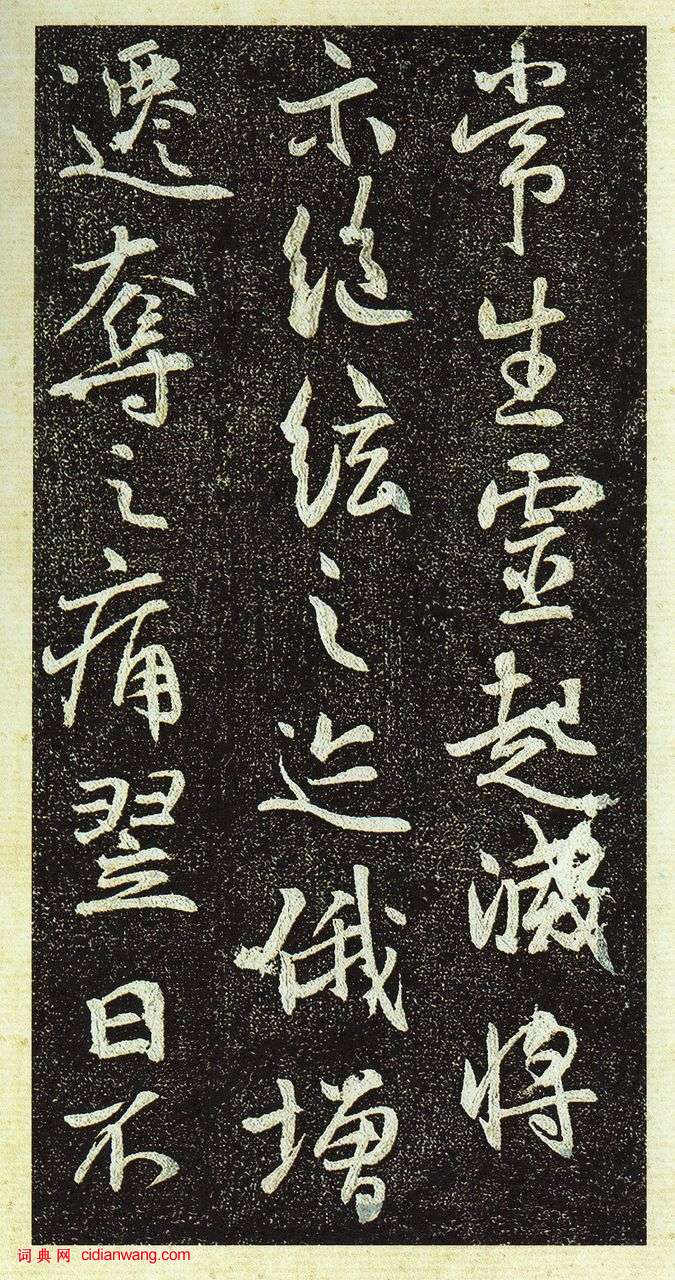 常生靈起滅將
示紘之迹俄增
遷奪之痛翌日不
词典网 cidianwang.com